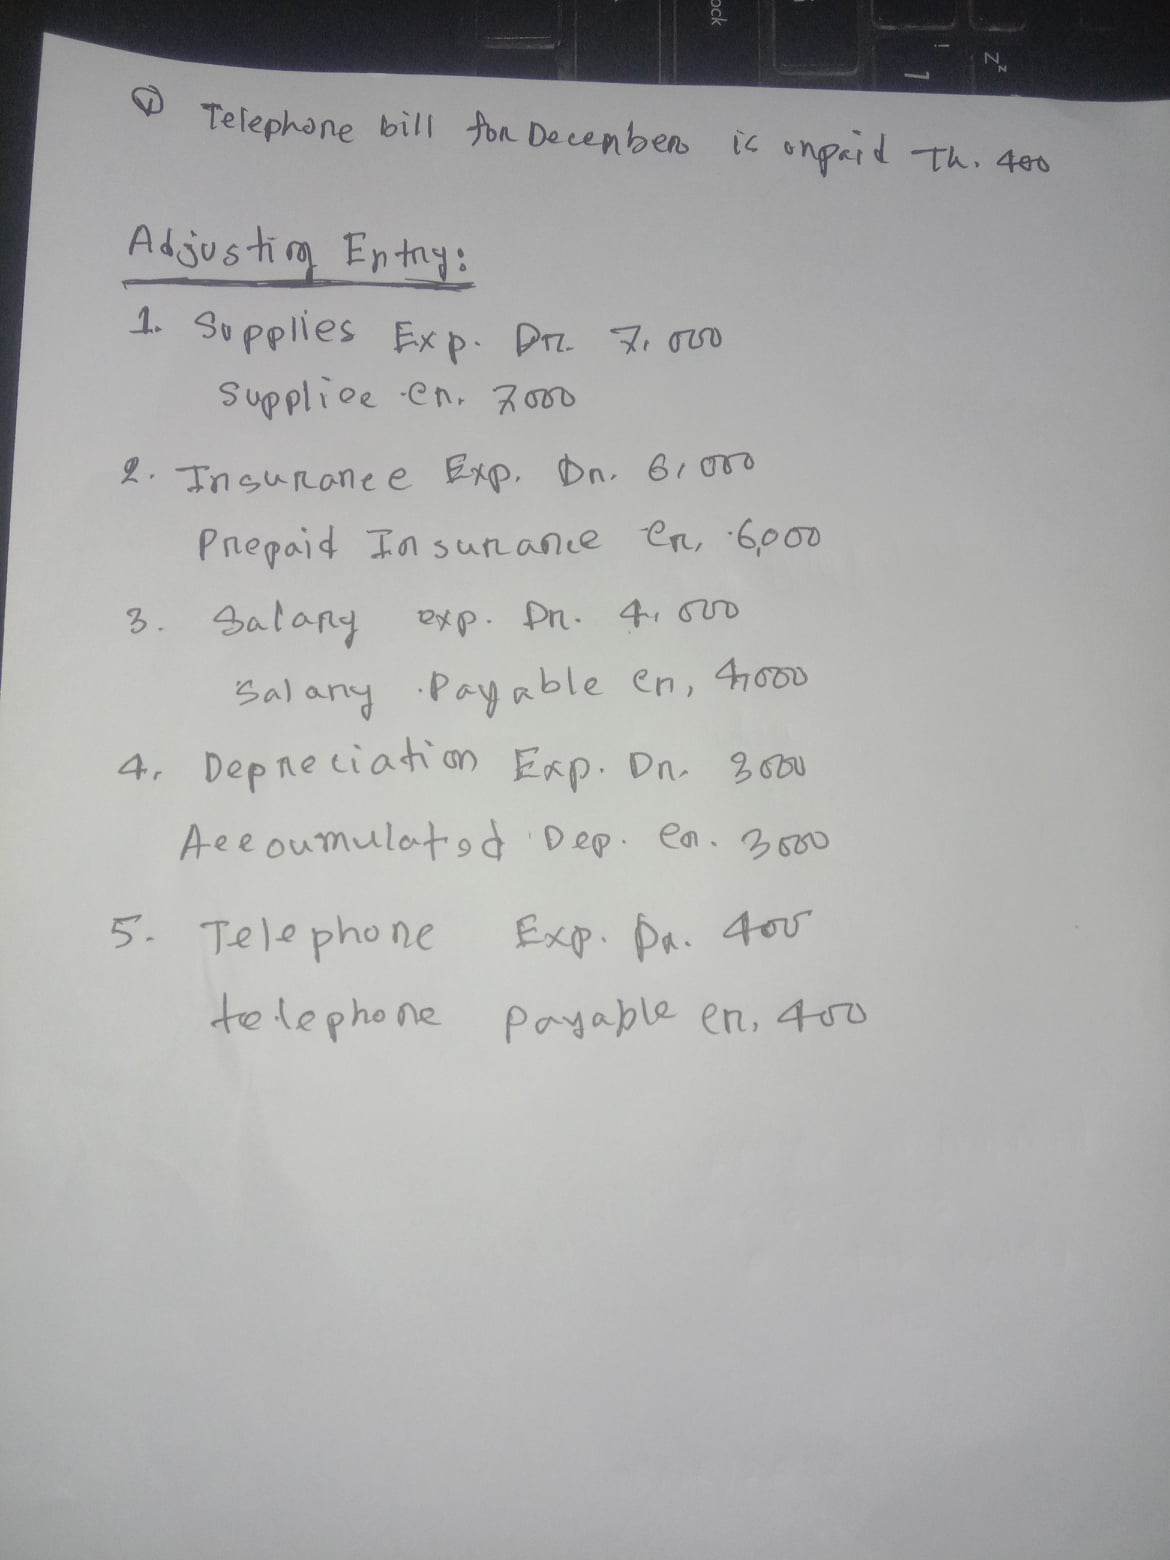 ock
! 1
Zz
(v) Telephone bill for December is unpaid Tk. 400
Adjusting Entry:
1. Supplies Exp. Dr. 7,000
Supplies cr. 7000
2. Insurance Exp. Dr. 6,000
Prepaid Insurance cr. 6,000
3. Salary exp. Dr. 4,000
Salary Payable cr, 4,000
4. Depreciation Exp. Dr. 3000
Accoumulated Dep. cr. 3000
5. Telephone Exp. Dr. 400
telephone payable cr. 400